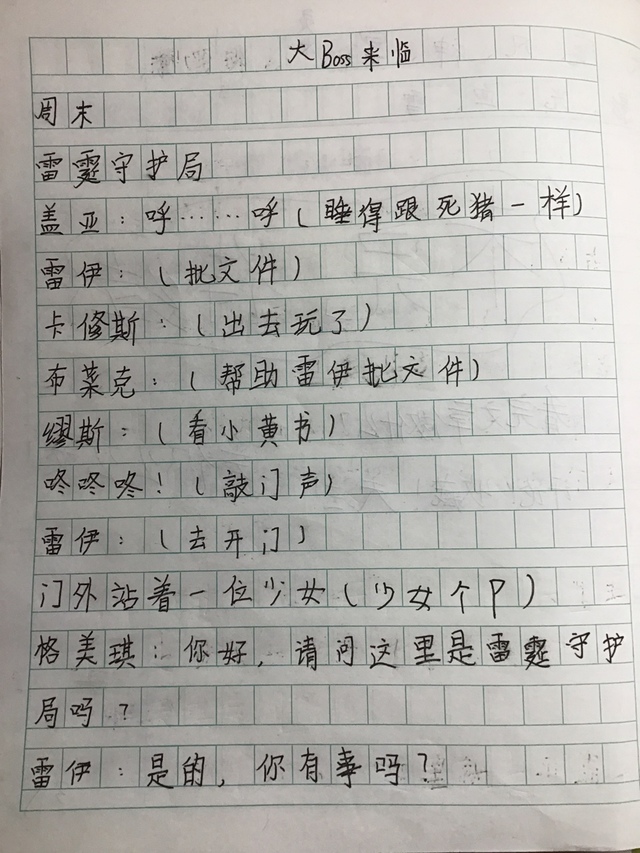 大Boss来临
周末
雷霆守护局
盖亚：呼……呼（睡得跟死猪一样）
雷伊：（批文件）
卡修斯：（出去玩了）
布莱克：（帮助雷伊批文件）
缪斯：（看小黄书）
咚咚咚！（敲门声）
雷伊：（去开门）
门外站着一位少女（少女个P）
格美琪：你好，请问这里是雷霆守护
局吗？
雷伊：是的，你有事吗？